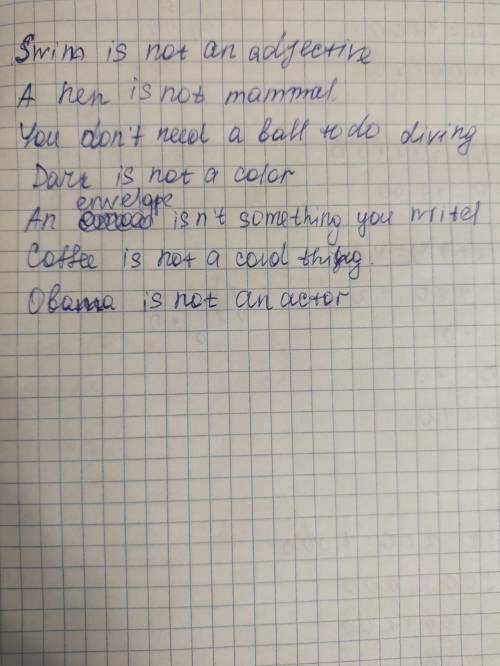 Swim is not an adjective
A hen is not mammal.
You don't need a ball to do diving
Dark is not a color
An envelope isn't something you writel
Coffee is not a cold thing.
Obama is not an actor